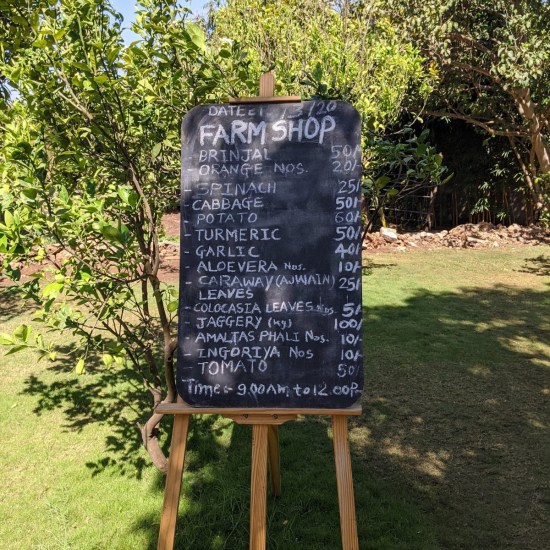 DATE: 1/3/20
FARM SHOP
- BRINJAL 50/-
- ORANGE NOS. 20/-
- SPINACH 25/
- CABBAGE 50/
- POTATO 60/
- TURMERIC 50/
- GARLIC 40/
- ALOEVERA NOS. 10/-
- CARAWAY (AJWAIN) 25/
LEAVES
- COLOCASIA LEAVES. NOS 5/-
- JAGGERY (Kg) 100/
- AMALTAS PHALI NOS. 10/-
- INGORIYA NOS 10/-
- TOMATO 50/
Time :- 9.00 AM. to 12.00 P.